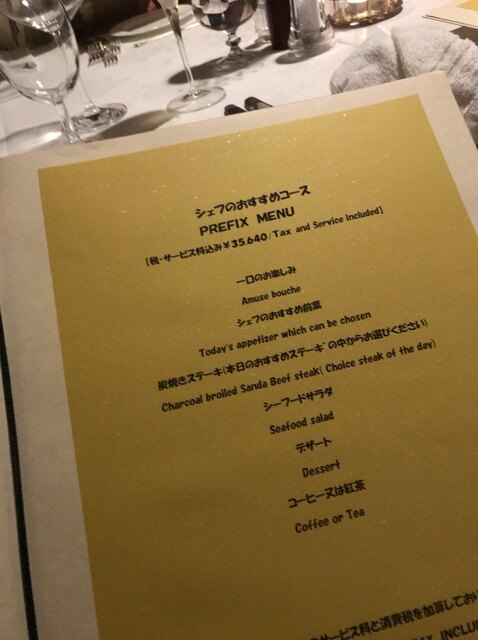 シェフのおすすめコース
PREFIX MENU
[税・サービス料込み¥35,640/Tax and Service included]
一口のお楽しみ
Amuse bouche
シェフのおすすめ前菜
Today's appetizer which can be chosen
炭焼きステーキ(本日のおすすめステーキの中からお選びください)
Charcoal broiled Sanda Beef steak( Choice steak of the day)
シーフードサラダ
Seafood salad
デザート
Dessert
コーヒー又は紅茶
Coffee or Tea
サービス料と消費税を加算してお